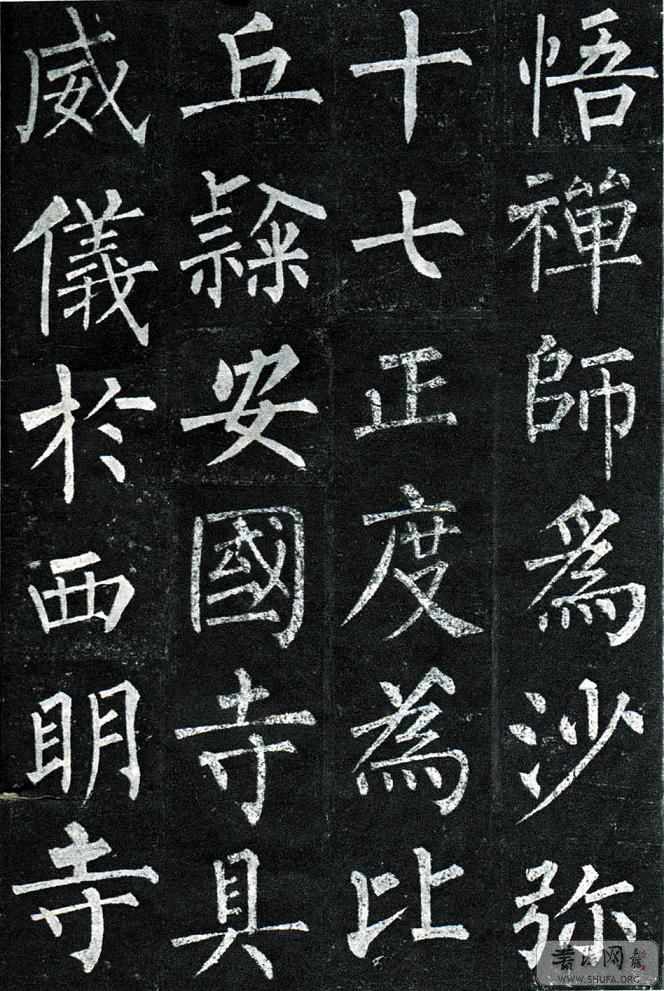 悟禪師爲沙弥
十七正度為比
丘隸安國寺具
威儀於西明寺
書法网
WWW.SHUFA.ORG